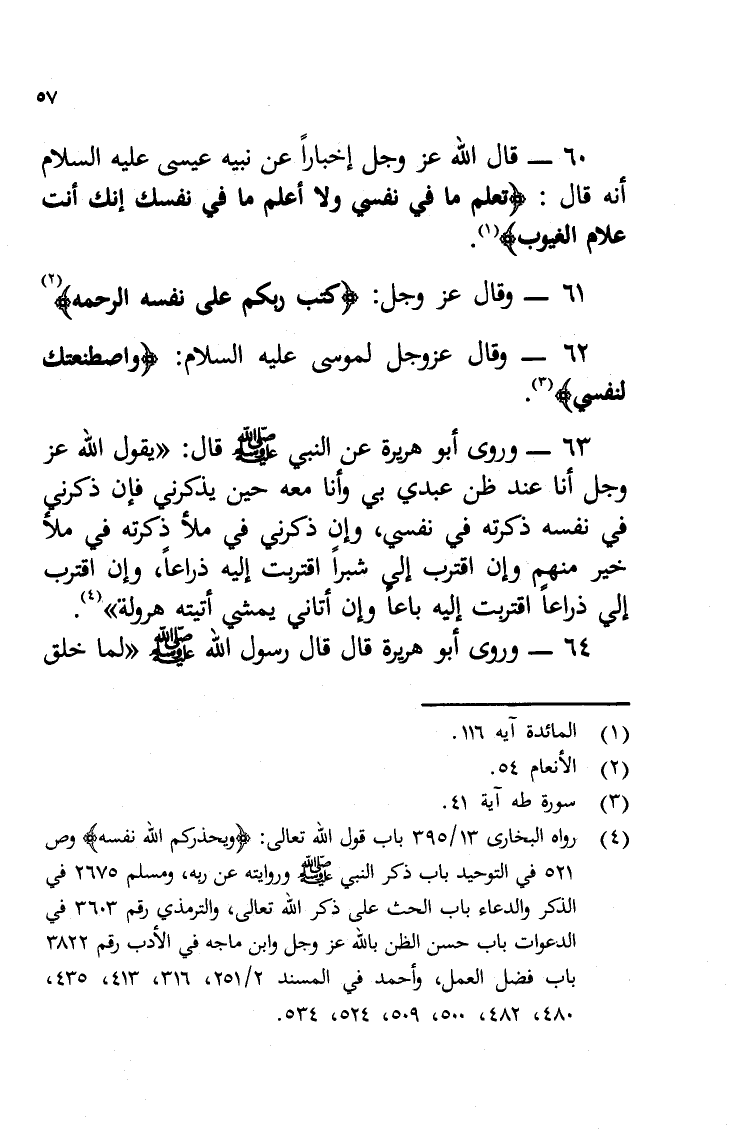 ٥٧
٦٠ ــ قال الله عز وجل إخباراً عن نبيه عيسى عليه السلام
أنه قال : ﴿تعلم ما في نفسي ولا أعلم ما في نفسك إنك أنت
علام الغيوب﴾(١).
٦١ ــ وقال عز وجل: ﴿كتب ربكم على نفسه الرحمه﴾(٢)
٦٢ ــ وقال عزوجل لموسى عليه السلام: ﴿واصطنعتك
لنفسي﴾(٣).
٦٣ ــ وروى أبو هريرة عن النبي ﷺ قال: «يقول الله عز
وجل أنا عند ظن عبدي بي وأنا معه حين يذكرني فإن ذكرني
في نفسه ذكرته في نفسي، وإن ذكرني في ملأ ذكرته في ملأ
خير منهم وإن اقترب إلي شبراً اقتربت إليه ذراعاً، وإن اقترب
إلي ذراعاً اقتربت إليه باعاً وإن أتاني يمشي أتيته هرولة»(٤).
٦٤ ــ وروى أبو هريرة قال قال رسول الله ﷺ «لما خلق
(١) المائدة آيه ١١٦.
(٢) الأنعام ٥٤.
(٣) سورة طه آية ٤١.
(٤) رواه البخارى ٣٩٥/١٣ باب قول الله تعالى: ﴿ويحذركم الله نفسه﴾ وص
٥٢١ في التوحيد باب ذكر النبي ﷺ وروايته عن ربه، ومسلم ٢٦٧٥ في
الذكر والدعاء باب الحث على ذكر الله تعالى، والترمذي رقم ٣٦٠٣ في
الدعوات باب حسن الظن بالله عز وجل وابن ماجه في الأدب رقم ٣٨٢٢
باب فضل العمل، وأحمد في المسند ٢٥١/٢، ٣١٦، ٤١٣، ٤٣٥،
٤٨٠، ٤٨٢، ٥٠٠، ٥٠٩، ٥٢٤، ٥٣٤.